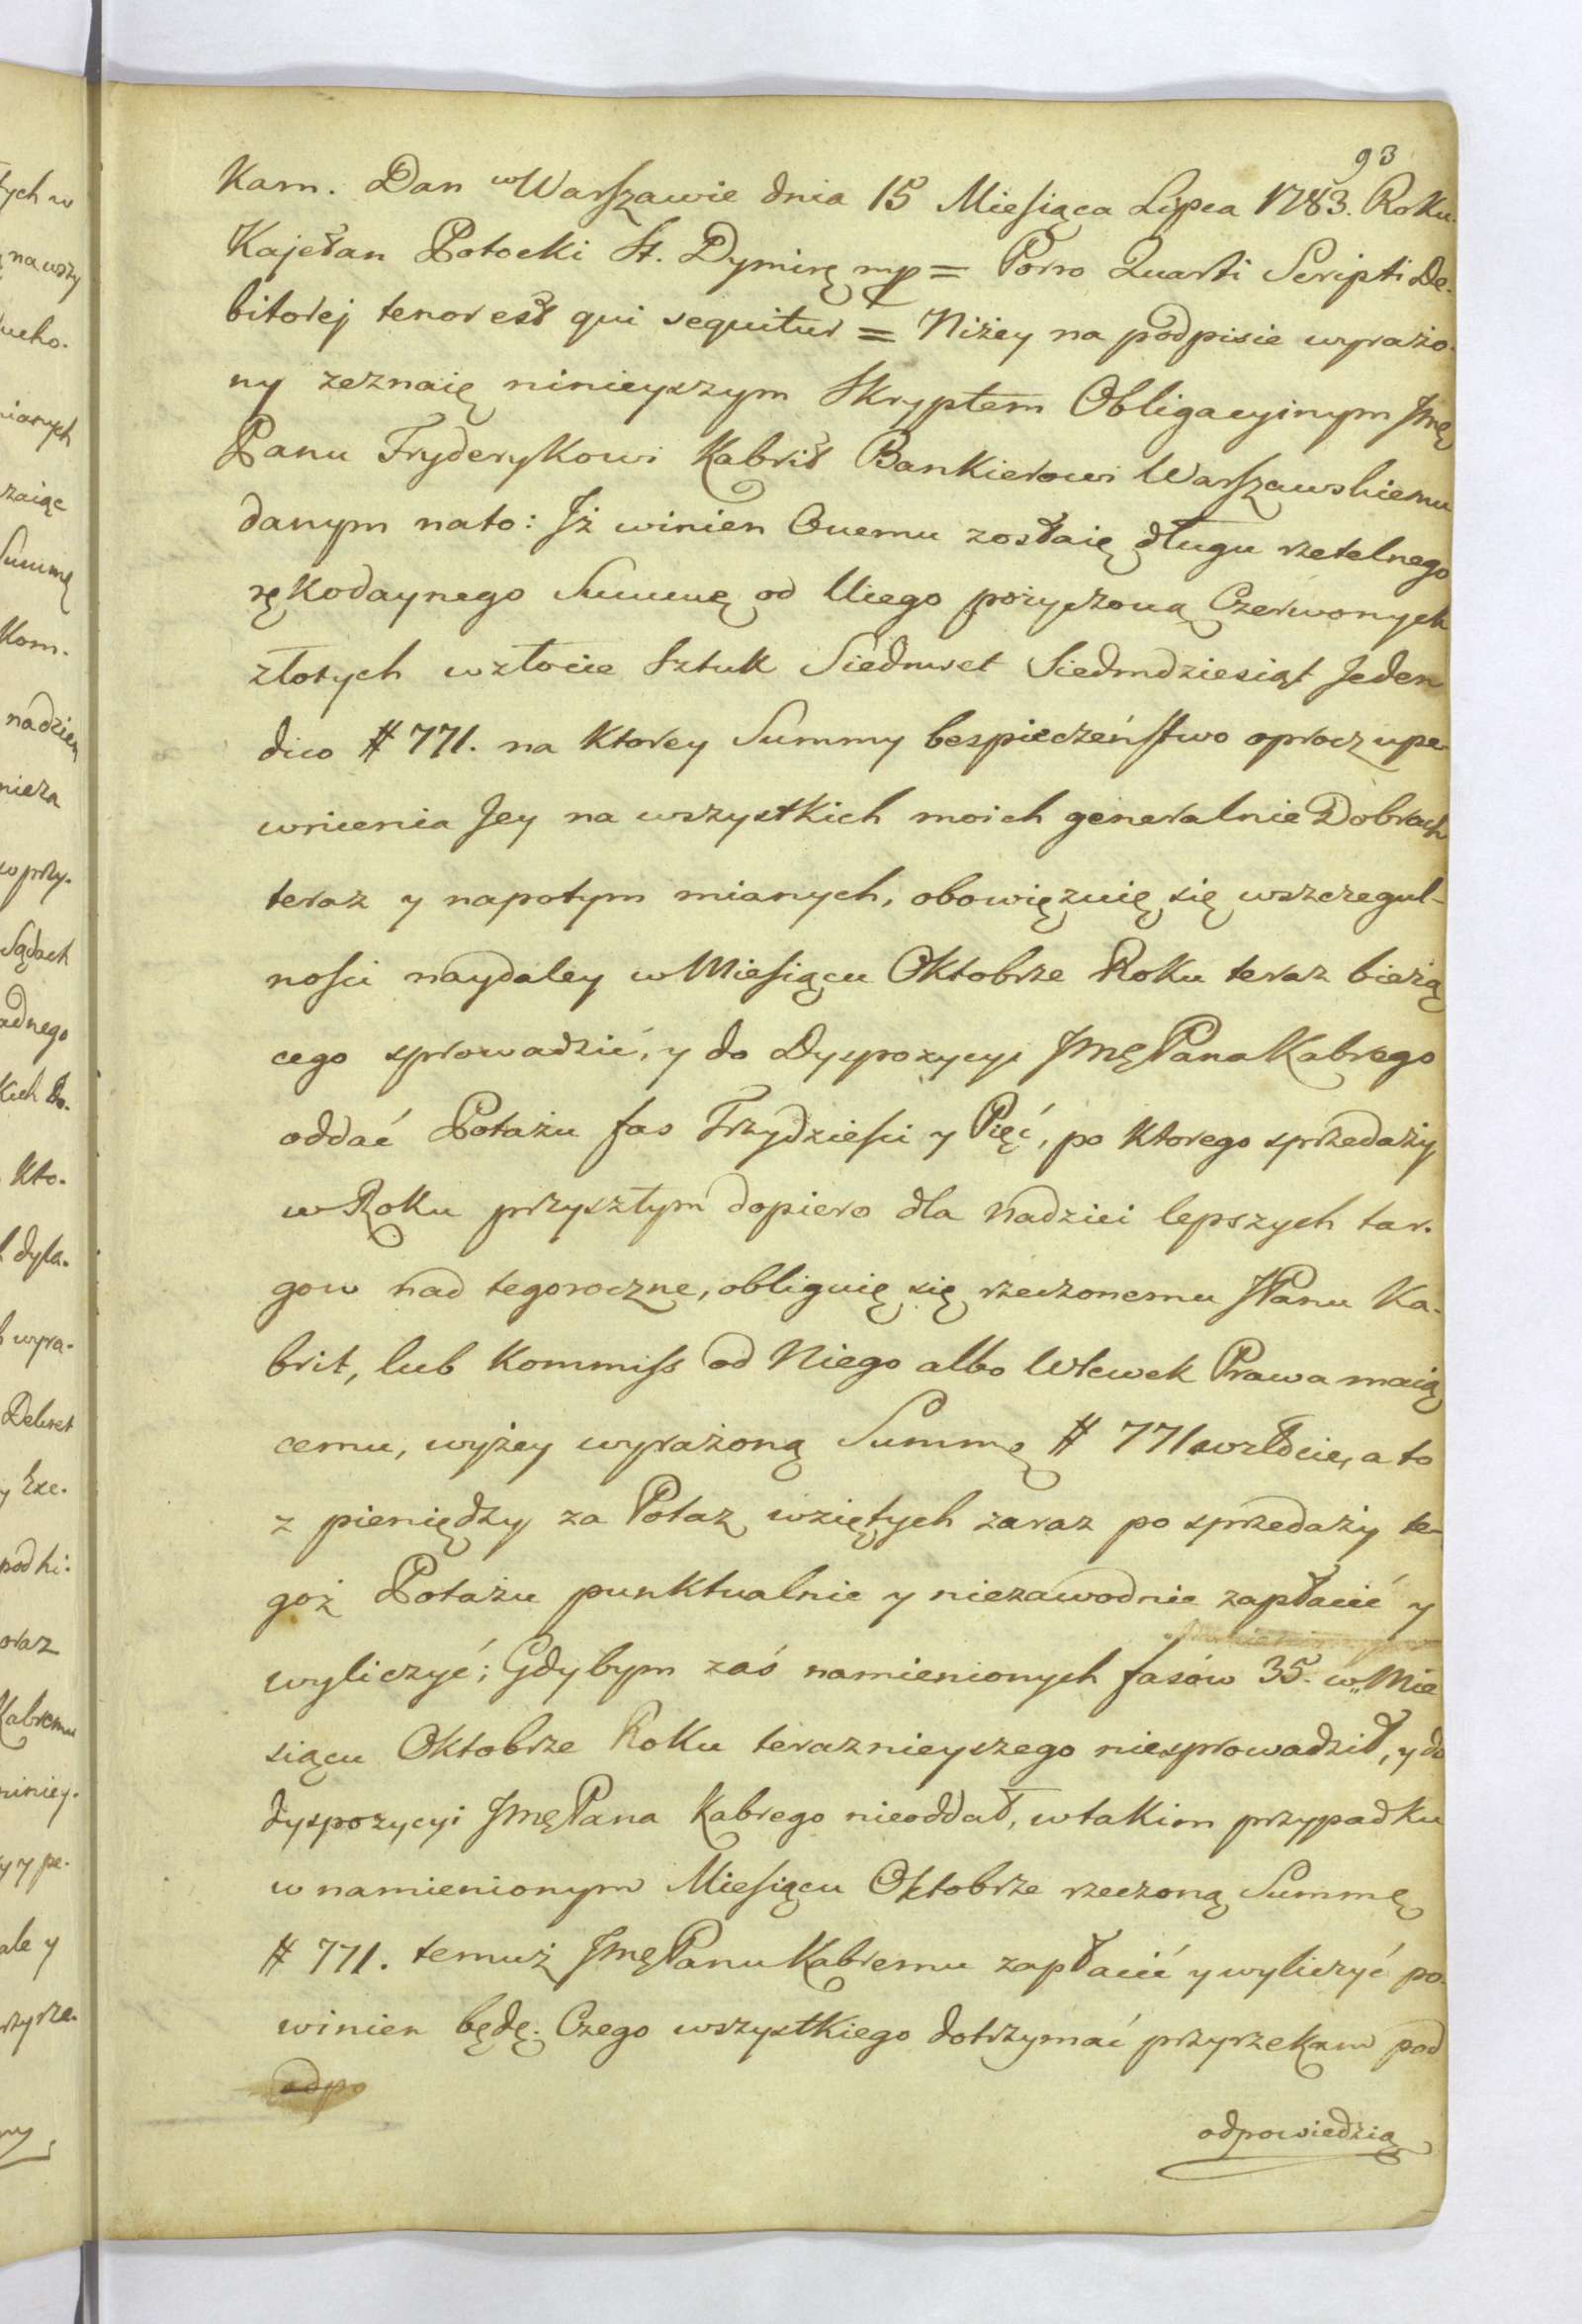 93
Kam. Dan w Warszawie dnia 15 Miesiąca Lipca 1783. Roku.
Kajetan Potocki St. Dymirę mp = Porro Quarti Scripti De-
bitorej tenor est qui sequitur = Niżey na podpisie wyrażo-
ny zeznaię ninieyszym Skryptem Obligacyinym Jmę
Panu Fryderykowi Kabrit Bankierowi Warszawskiemu
danym nato: Jż winien Onemu zostaię długu rzetelnego
rękodaynego Summę od Niego pożyczoną Czerwonych
złotych wzłocie Sztuk Siedmset Siedmdziesiąt Jeden
dico # 771. na ktorey Summy bespieczeństwo oprocz upe-
wnienia Jey na wszystkich moich generalnie Dobrach
teraz y napotym mianych, obowięzuię się wszczegul-
nosci naydaley w Miesiącu Oktobrze Roku teraz bieżą
cego sprowadzić, y do Dyspozycyi Jmę Pana Kabrego
oddać Potażu fas Trzydziesci y Pięć, po ktorego sprzedaży
w Roku przyszłym dopiero dla nadziei lepszych tar-
gow nad tegoroczne, obliguię się rzeczonemu JPanu Ka-
brit, lub Kommiss od Niego albo Wlewek Prawa maią
cemu, wyżey wyrażoną Summę # 771 wzłocie, a to
z pieniędzy za Potaż wziętych zaraz po sprzedaży te-
goż Potażu punktualnie y niezawodnie zapłacić y
wyliczyć; Gdybym zaś namienionych fasów 35. w Mie
siącu Oktobrze Roku teraznieyszego niesprowadził, y do
dyspozycyi Jmę Pana Kabrego nieoddał, wtakim przypadku
w namienionym Miesiącu Oktobrze rzeczoną Summę
# 771. temuż Jmę Panu Kabremu zapłacić y wyliczyć po-
winien będę. Czego wszystkiego dotrzymać przyrzekam pod
odpo
odpowiedzią